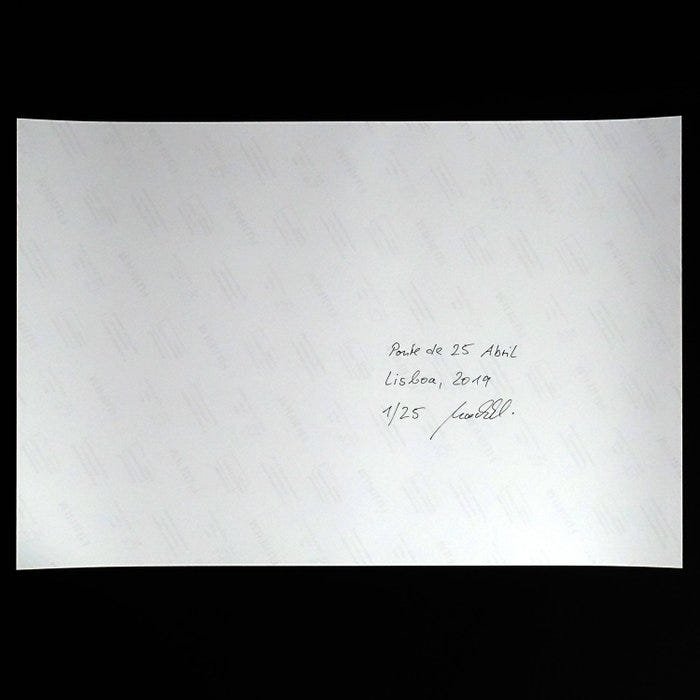 Ponte de 25 Abril
Lisboa, 2019
1/25